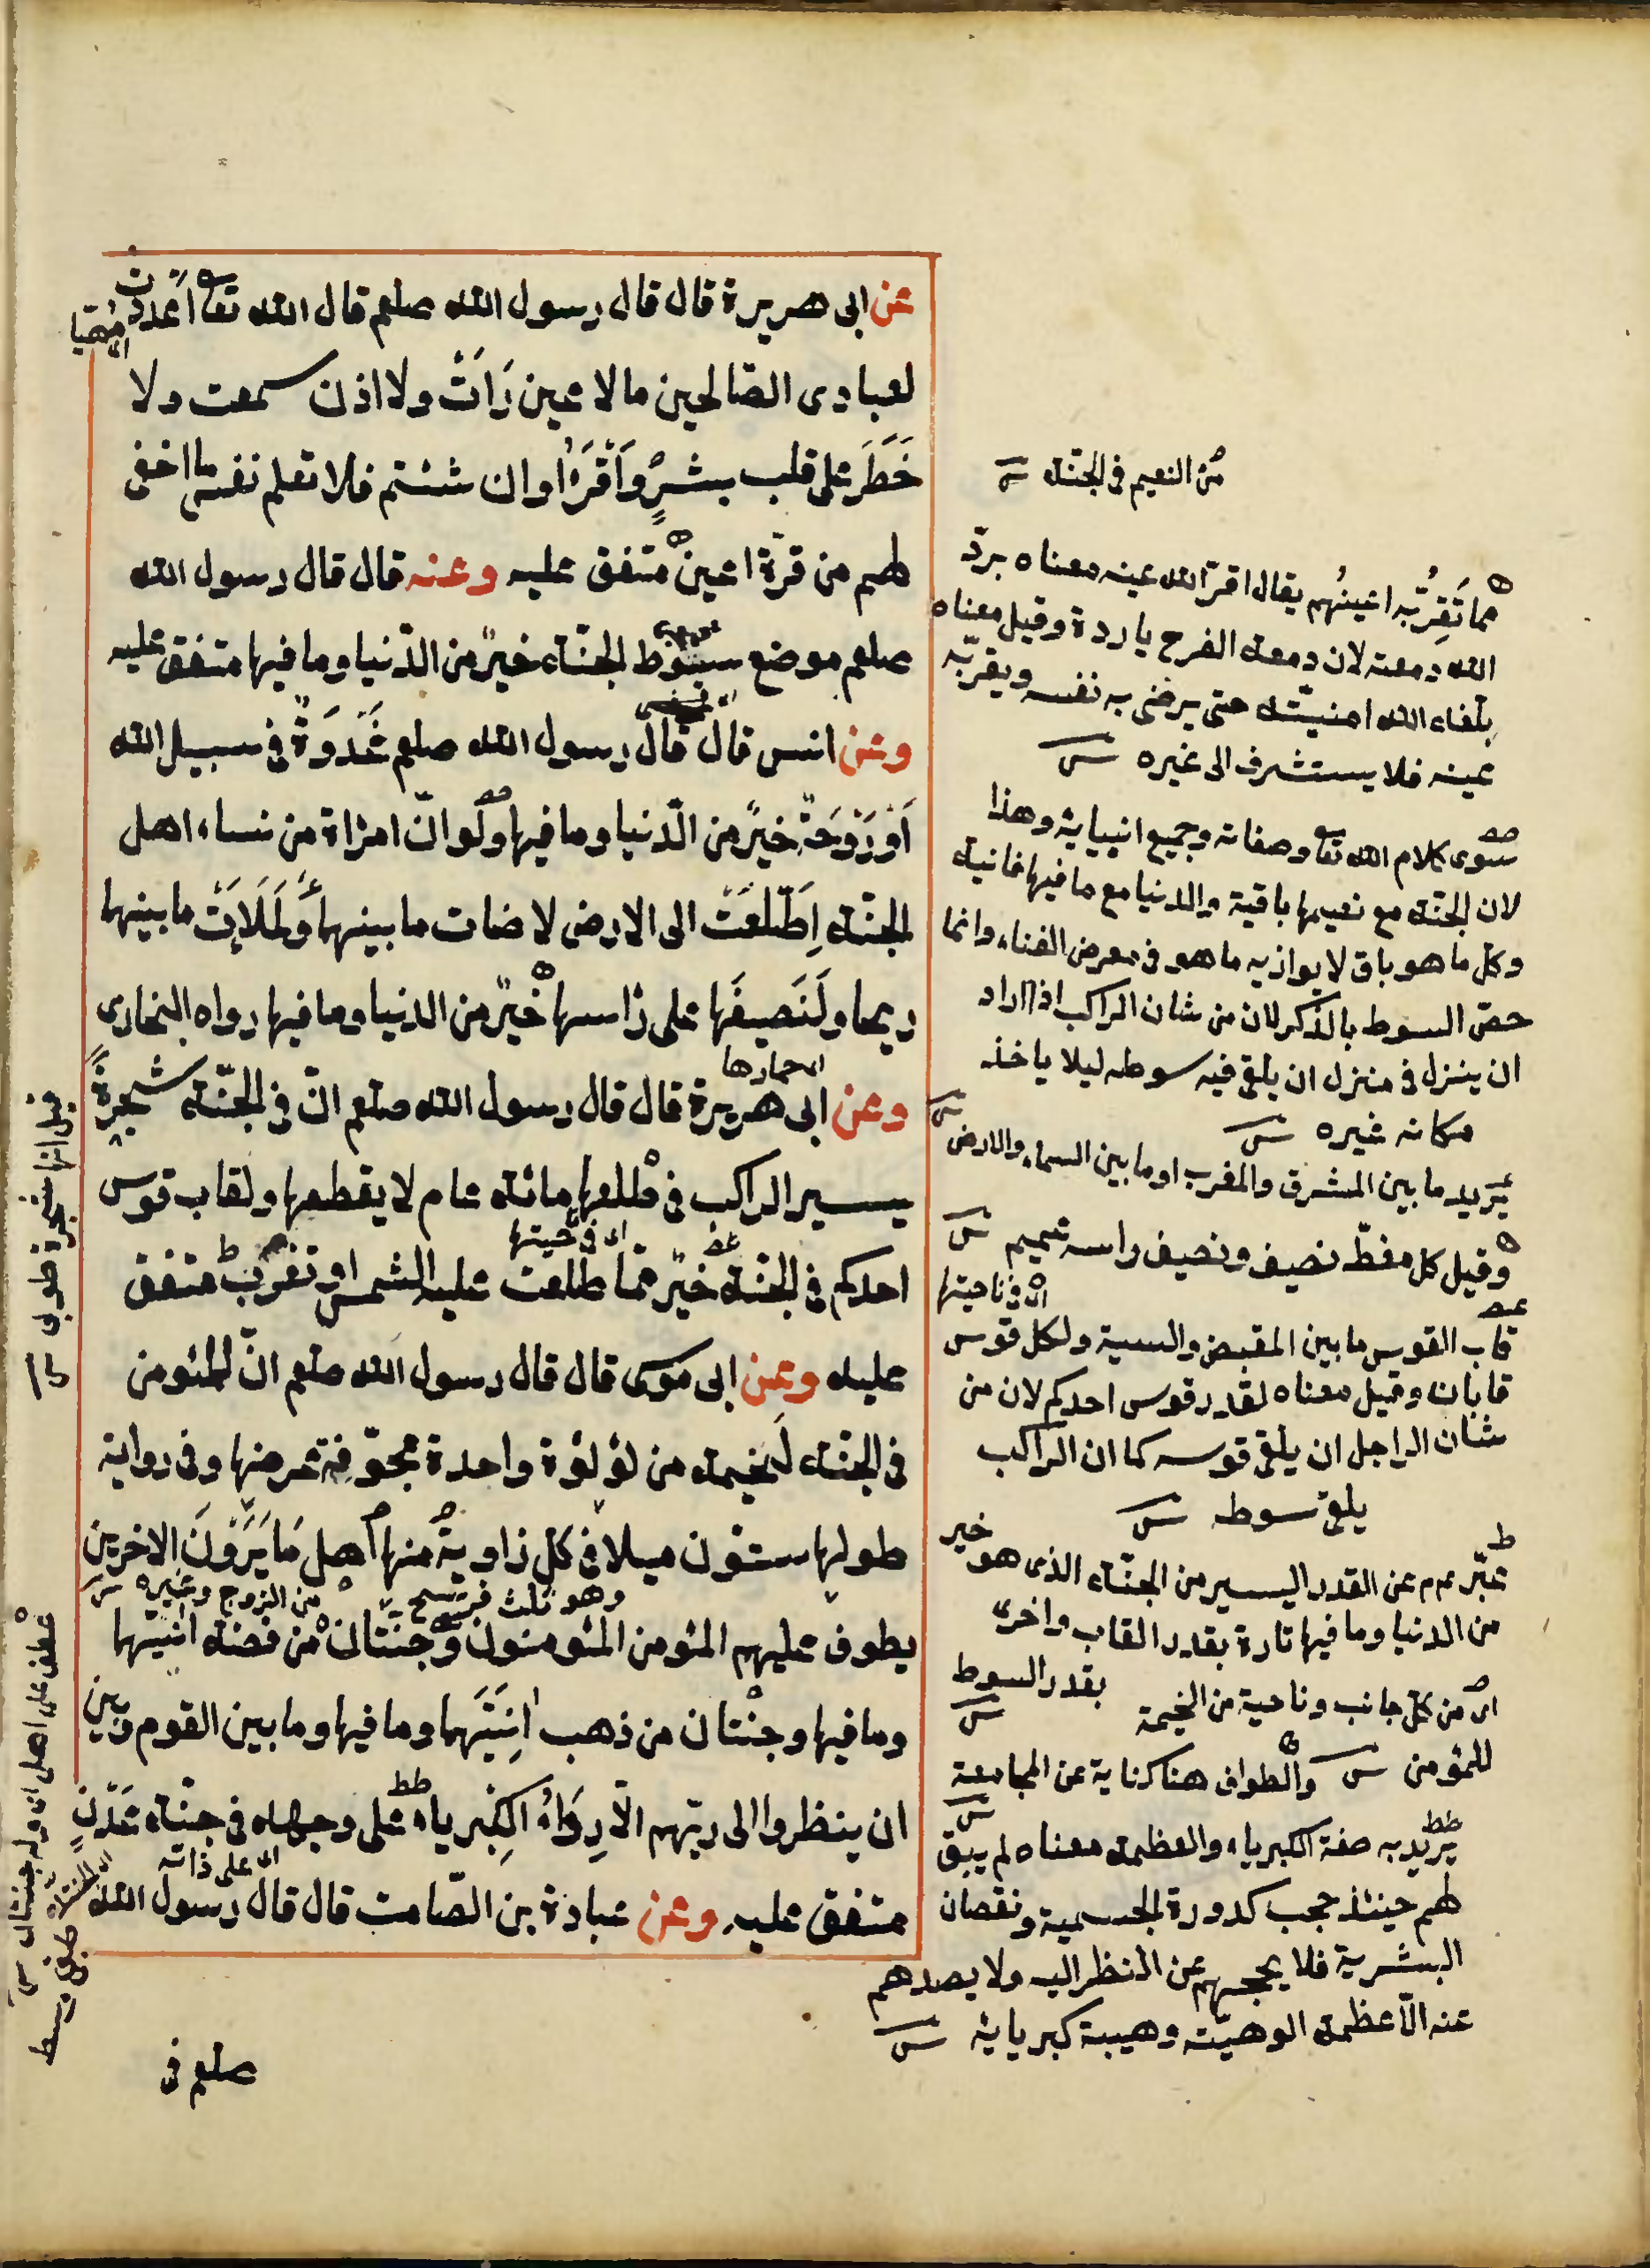 عن ابى هريرة قال قال رسول الله صلعم قال الله تعا اعددت
لعبادى الصّالحين مالا عين رَاَتْ ولا اذن سمعت ولا
خَطَرَ على قلب بشرٍ وَاَقْرَؤُا وان شئتم فلا تعلم نفس ما اخفى
لهم من قرّة اعين متفق عليه وعنه قال قال رسول الله
صلعم موضع سوط الجنّة خيرٌ من الدّنيا وما فيها متفق عليه
وعن انس قال قال رسول الله صلعم غَدَوَةٌ فى سبيل الله
اَوْ رَوْحَةٌ خيرٌ من الدّنيا وما فيها ولو انّ امراة من نساء اهل
الجنّة اِطَّلَعَتْ الى الارض لاضات ما بينهما وَلَمَلَاَتْ ما بينهما
ريحا ولَنَصِيفَها على رأسها خيرٌ من الدنيا وما فيها رواه البخارى
اى خمارها
وعن ابى هريرة قال قال رسول الله صلعم انّ فى الجنّة شجرةً
يسير الراكب فى ظلها مائة عام لا يقطعها ولقاب قوس
اى فى ناحيتها
احدكم فى الجنّة خيرٌ ممّا طلعت عليه الشمس او تغرب متفق
عليه وعن ابى موسى قال قال رسول الله صلعم انّ للمؤمن
فى الجنّة لَخيمة من لؤلؤة واحدة مجوّفة عرضها وفى رواية
طولها ستّون ميلا فى كلّ زاوية منها اهل مَا يَرَوْنَ الاخرين
وهو ثلث فرسخ من الزوج وغيره
يطوف عليهم المؤمن المؤمنون وجنّتان من فضة انيتهما
وما فيها وجنّتان من ذهب اٰنِيَتَهما وما فيها وما بين القوم وبين
ان ينظروا الى ربّهم الّا رِدَاءُ الكِبرياء على وجهه فى جنّة عَدْنٍ
اى على ذاته
متفق عليه وعن عبادة بن الصّامت قال قال رسول الله
صلعم فى
من النعيم فى الجنّة
مما تَقِرُّ به اعينُهم يقال اقرّ الله عينه معناه برّد
الله دمعته لان دمعة الفرح باردة وقيل معناه
بلغه الله امنيّته حتى يرضى به نفسه ويقرّ به
عينه فلا يستشرف الى غيره
سوى كلام الله تعا وصفاته وجميع انبيايه وهذا
لان الجنّة مع نعيمها باقية والدنيا مع ما فيها فانية
وكلّ ما هو باق لا يوازيه ما هو فى معرض الفناء وانما
خصّ السوط بالذكر لان من شان الراكب اذا اراد
ان ينزل فى منزل ان يلقى فيه سوطه ليلا ياخذ
مكانه غيره
يريد ما بين المشرق والمغرب او ما بين السماء والارض
وقيل كل مغطّ نصيف ونصيف راسه عميم
اى فى ناحيتها
قاب القوس ما بين المقبض والسية ولكل قوس
قابان وقيل معناه لقدر قوس احدكم لان من
شان الراجل ان يلقى قوسه كما ان الراكب
يلقى سوطه
عبّر عم عن القدر اليسير من الجنّة الذى هو خير
من الدنيا وما فيها تارة بقدر القاب واخرى
بقدر السوط
اى من كلّ جانب وناحية من الخيمة
للمؤمن والطواف هنا كناية عن المجامعة
يريد به صفة الكبرياء والعظمة معناه لم يبق
لهم حينئذ حجب كدورة الجسمية ونقصان
البشرية فلا يحجبهم عن النظر اليه ولا يصدهم
عنه الّا عظمة الوهيّته وهيبة كبريايه
قيل انها شجرة طوبى
عطف على اهل اى وله جنّتان